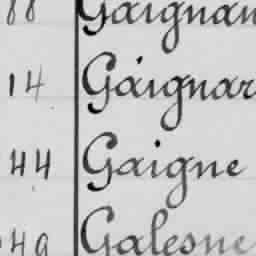 88 Gaignan
14 Gaignar
44 Gaigne
49 Galesne